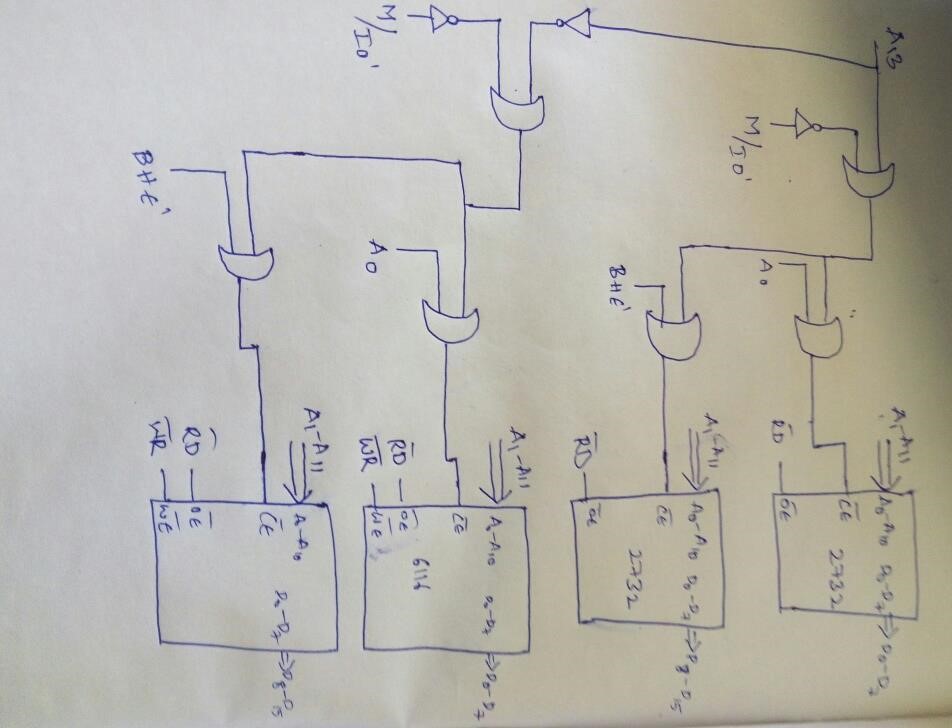 A13
M/IO'
A0
BHE'
A1-A11
A0-A10 D0-D7 ⇒ D0-D7
C̅E̅
2732
R̅D̅ O̅E̅
A1-A11
A0-A10 D0-D7 ⇒ D8-D15
C̅E̅
2732
R̅D̅ O̅E̅
M/IO'
A0
BHE'
A1-A11
A0-A10 D0-D7 ⇒ D0-D7
C̅E̅
6116
R̅D̅ O̅E̅
W̅R̅ W̅E̅
A1-A11
A0-A10
D0-D7 ⇒ D8-D15
C̅E̅
R̅D̅ O̅E̅
W̅R̅ W̅E̅